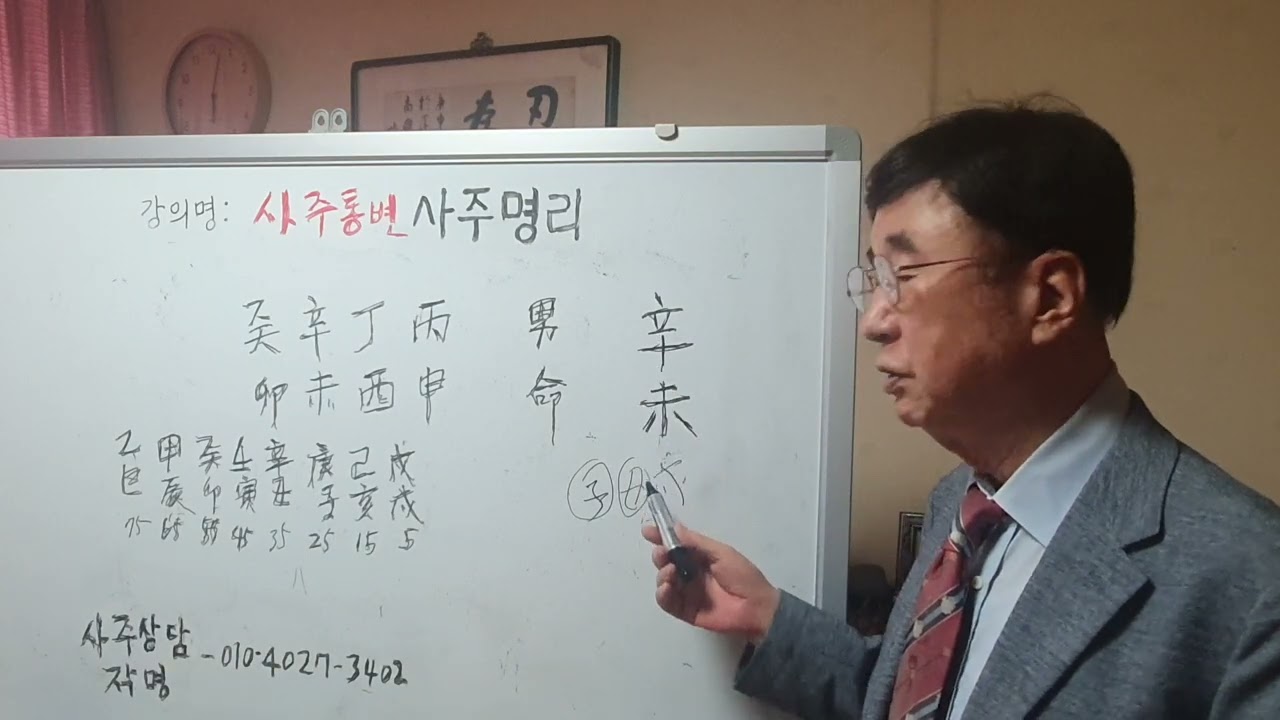 刃有
강의명: 사주통변 사주명리
癸辛丁丙 男 辛
卯未酉申 命 未
乙甲癸壬辛庚己戊
巳辰卯寅丑子亥戌
75 65 55 45 35 25 15 5
子 丑
사주상담
작명 -010-4027-3402